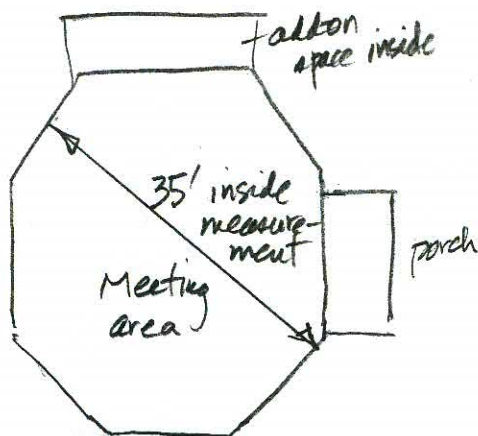 addon
space inside
35' inside
measure-
ment
porch
Meeting
area